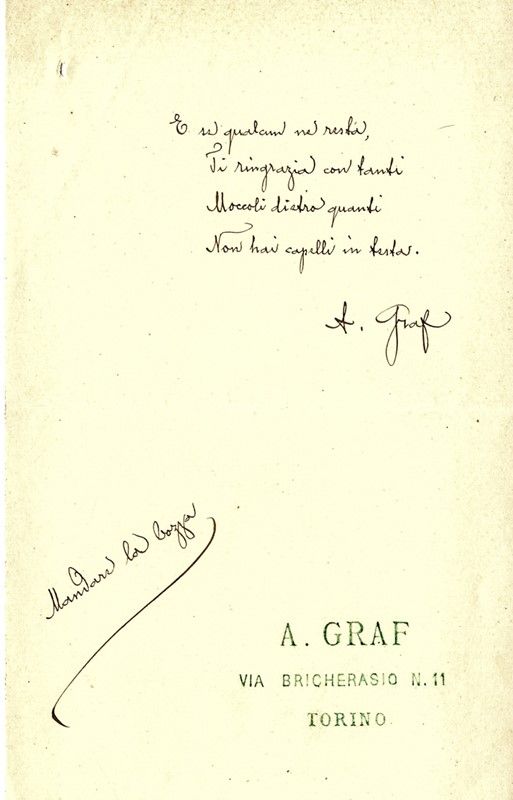 E se qualcun ne resta,
Ti ringrazia con tanti
Moccoli dietro quanti
Non hai capelli in testa.
A. Graf
Mandare la bozza
A. GRAF
VIA BRICHERASIO N. 11
TORINO